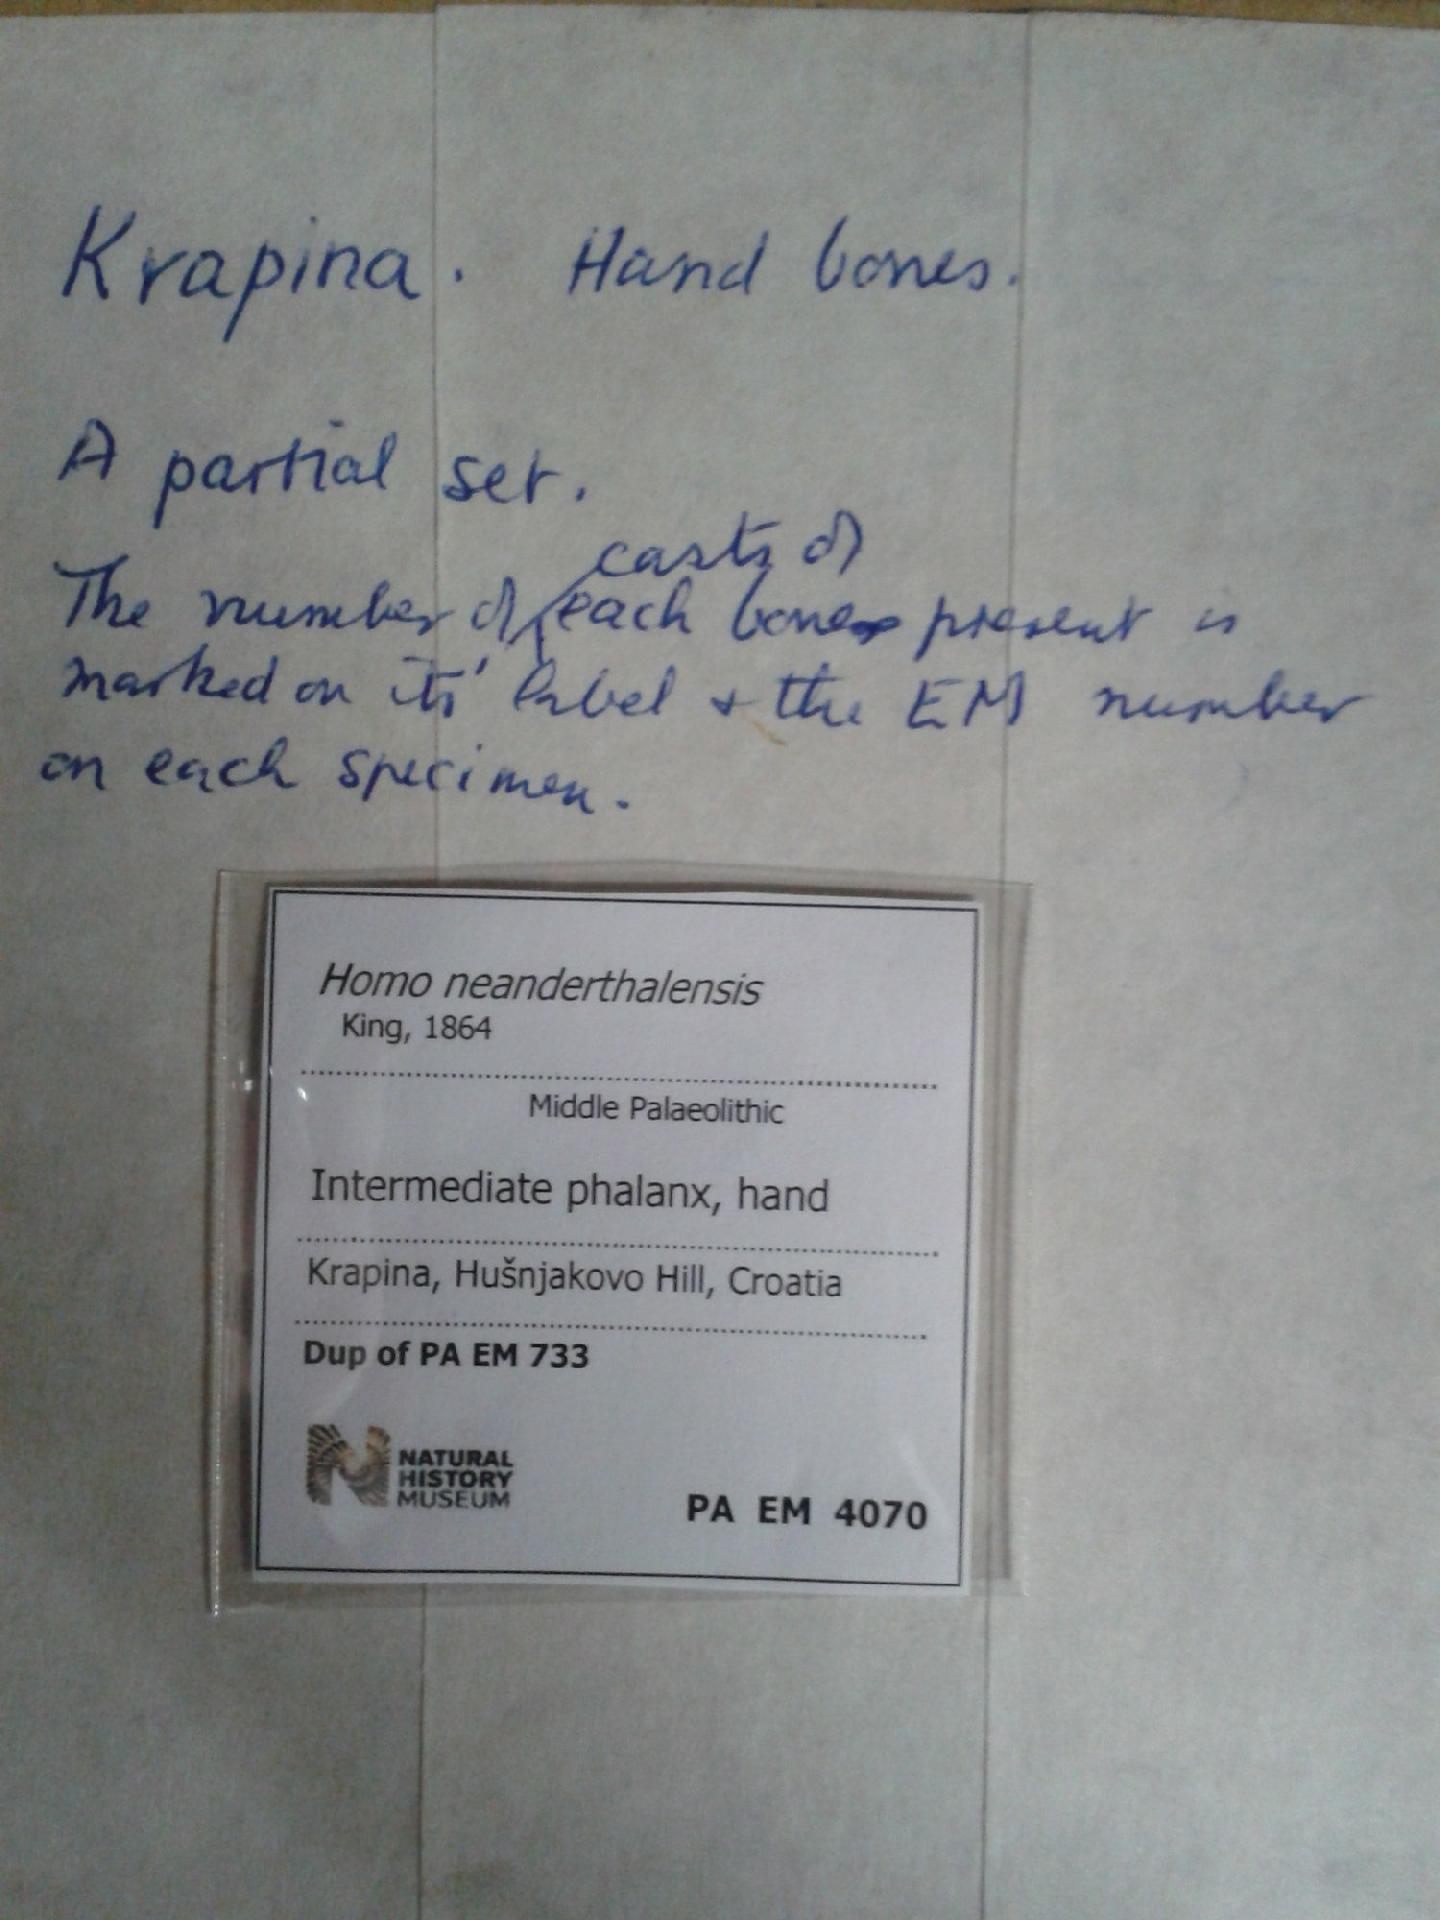 Krapina. Hand bones.
A partial set.
casts of
The number of each bone present is
marked on its' label + the EM number
on each specimen.
Homo neanderthalensis
King, 1864
Middle Palaeolithic
Intermediate phalanx, hand
Krapina, Hušnjakovo Hill, Croatia
Dup of PA EM 733
NATURAL
HISTORY
MUSEUM
PA EM 4070